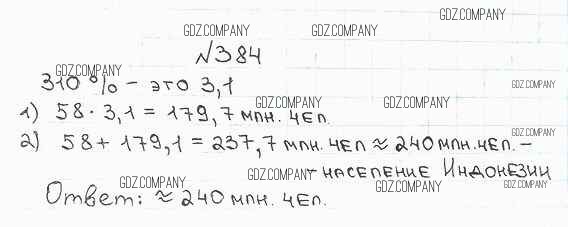 GDZ.COMPANY
GDZ.COMPANY GDZ.COMPANY
№384
GDZ.COMPANY
310% – это 3,1 GDZ.COMPANY
1) 58 · 3,1 = 179,7 млн. чел. GDZ.COMPANY GDZ.COMPANY
2) 58 + 179,1 = 237,7 млн. чел ≈ 240 млн. чел. –
GDZ.COMPANY GDZ.COMPANY
– население Индонезии
GDZ.COMPANY GDZ.COMPANY GDZ.COMPANY
Ответ: ≈ 240 млн. чел.